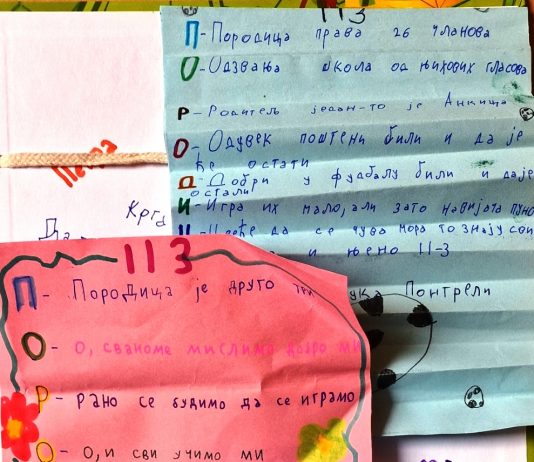 113
П-Породица права 26 чланова
О-Одзвања школа од њихових гласова
Р-Родитељ један-то је Анкица
О-Одувек поштени били и да је
ће остати
Д-Добри у фудбалу били и даје
остали
И-Игра их мало, али зато навијата пуно
да се чува мора то знају сви
и њено II-3
Понтрели
Петра
Да
113
П- Породица је друго
О- О, сваноме мислимо добро ми
Р- Рано се будимо да се играмо
О- О, и сви учимо ми